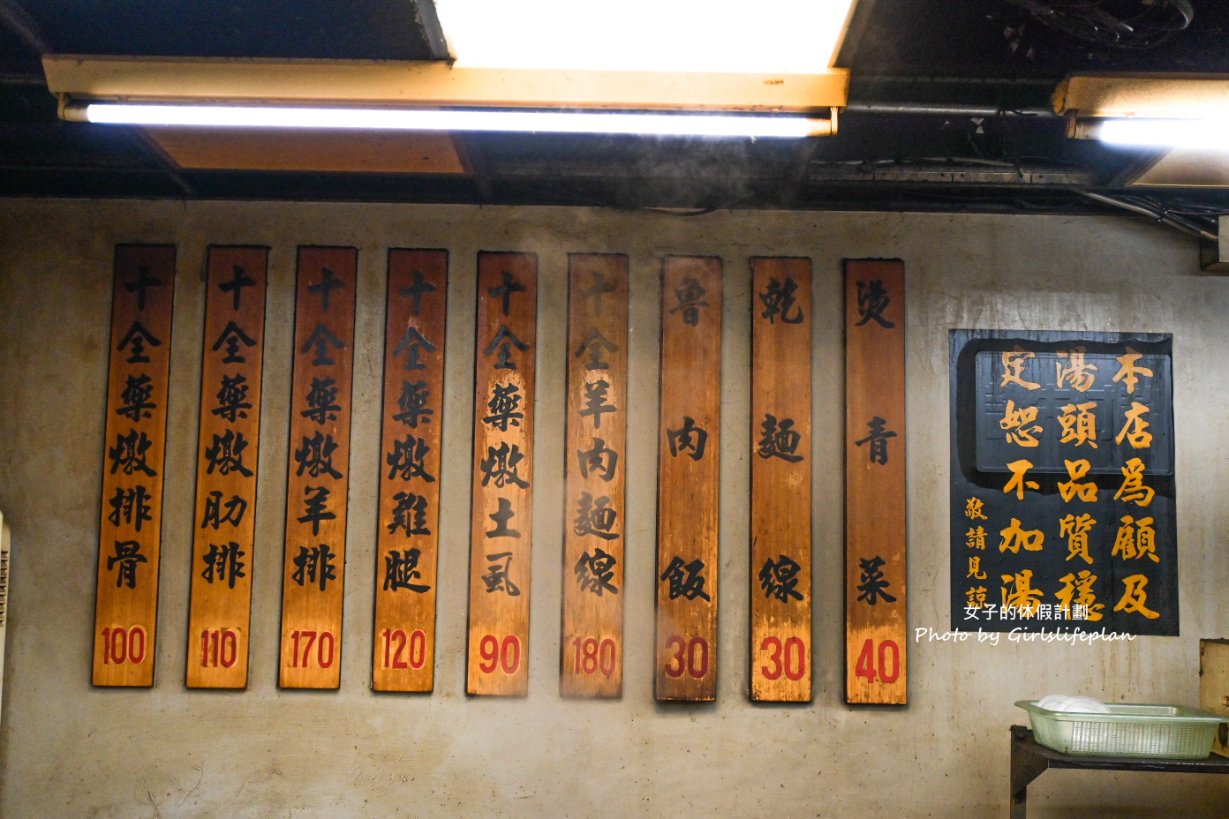 十全藥燉排骨
100
十全藥燉肋排
110
十全藥燉羊排
170
十全藥燉雞腿
120
十全藥燉土虱
90
十全羊肉麵線
180
魯肉飯
30
乾麵線
30
燙青菜
40
本店為顧及
湯頭品質穩
定恕不加湯
敬請見諒
女子的休假計劃
Photo by Girlslifeplan